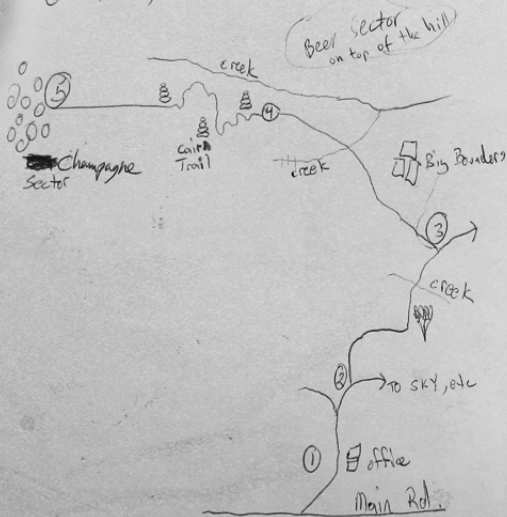 Beer Sector
on top of the hill
creek
5
4
Cairn
Trail
creek
Champagne
Sector
Big Bounders
3
creek
2
TO SKY, etc
1
office
Main Rd.